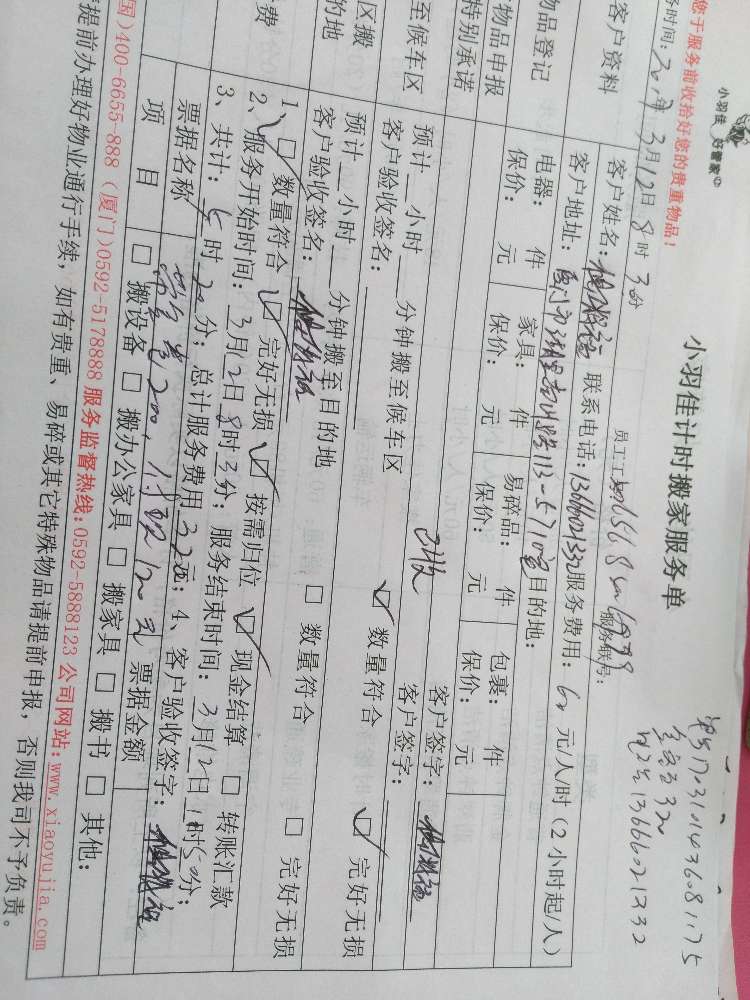 小羽佳 好管家
您于服务前收拾好您的贵重物品！
务时间：2017年3月12日8时3分
小羽佳计时搬家服务单
13666021332
员工工号
服务联号：
客户资料
客户姓名：
联系电话：
服务费用：60元/人/时（2小时起/人）
客户地址：
目的地：
物品登记
电器： 件 家具： 件 易碎品： 件 包裹： 件
保价： 元 保价： 元 保价： 元 保价： 元
物品申报
特别承诺
已收
客户签字：
至候车区
预计 小时 分钟搬至候车区
客户验收签名：
数量符合
完好无损
客户签字：
区搬
的地
预计 小时 分钟搬至目的地
客户验收签名：
数量符合
完好无损
费
1、数量符合 完好无损 按需归位 现金结算 转账汇款
2、服务开始时间：3月12日8时3分；服务结束时间：3月12日1时50分；
3、共计： 时20分；总计服务费用320元；4、客户验收签字：
票据名称
票据金额
项目
搬设备 搬办公家具 搬家具 搬书 其他：
国)400-6655-888 （厦门)0592-5178888 服务监督热线：0592-5888123 公司网站：www.xiaoyujia.com
提前办理好物业通行手续，如有贵重、易碎或其它特殊物品请提前申报，否则我司不予负责。